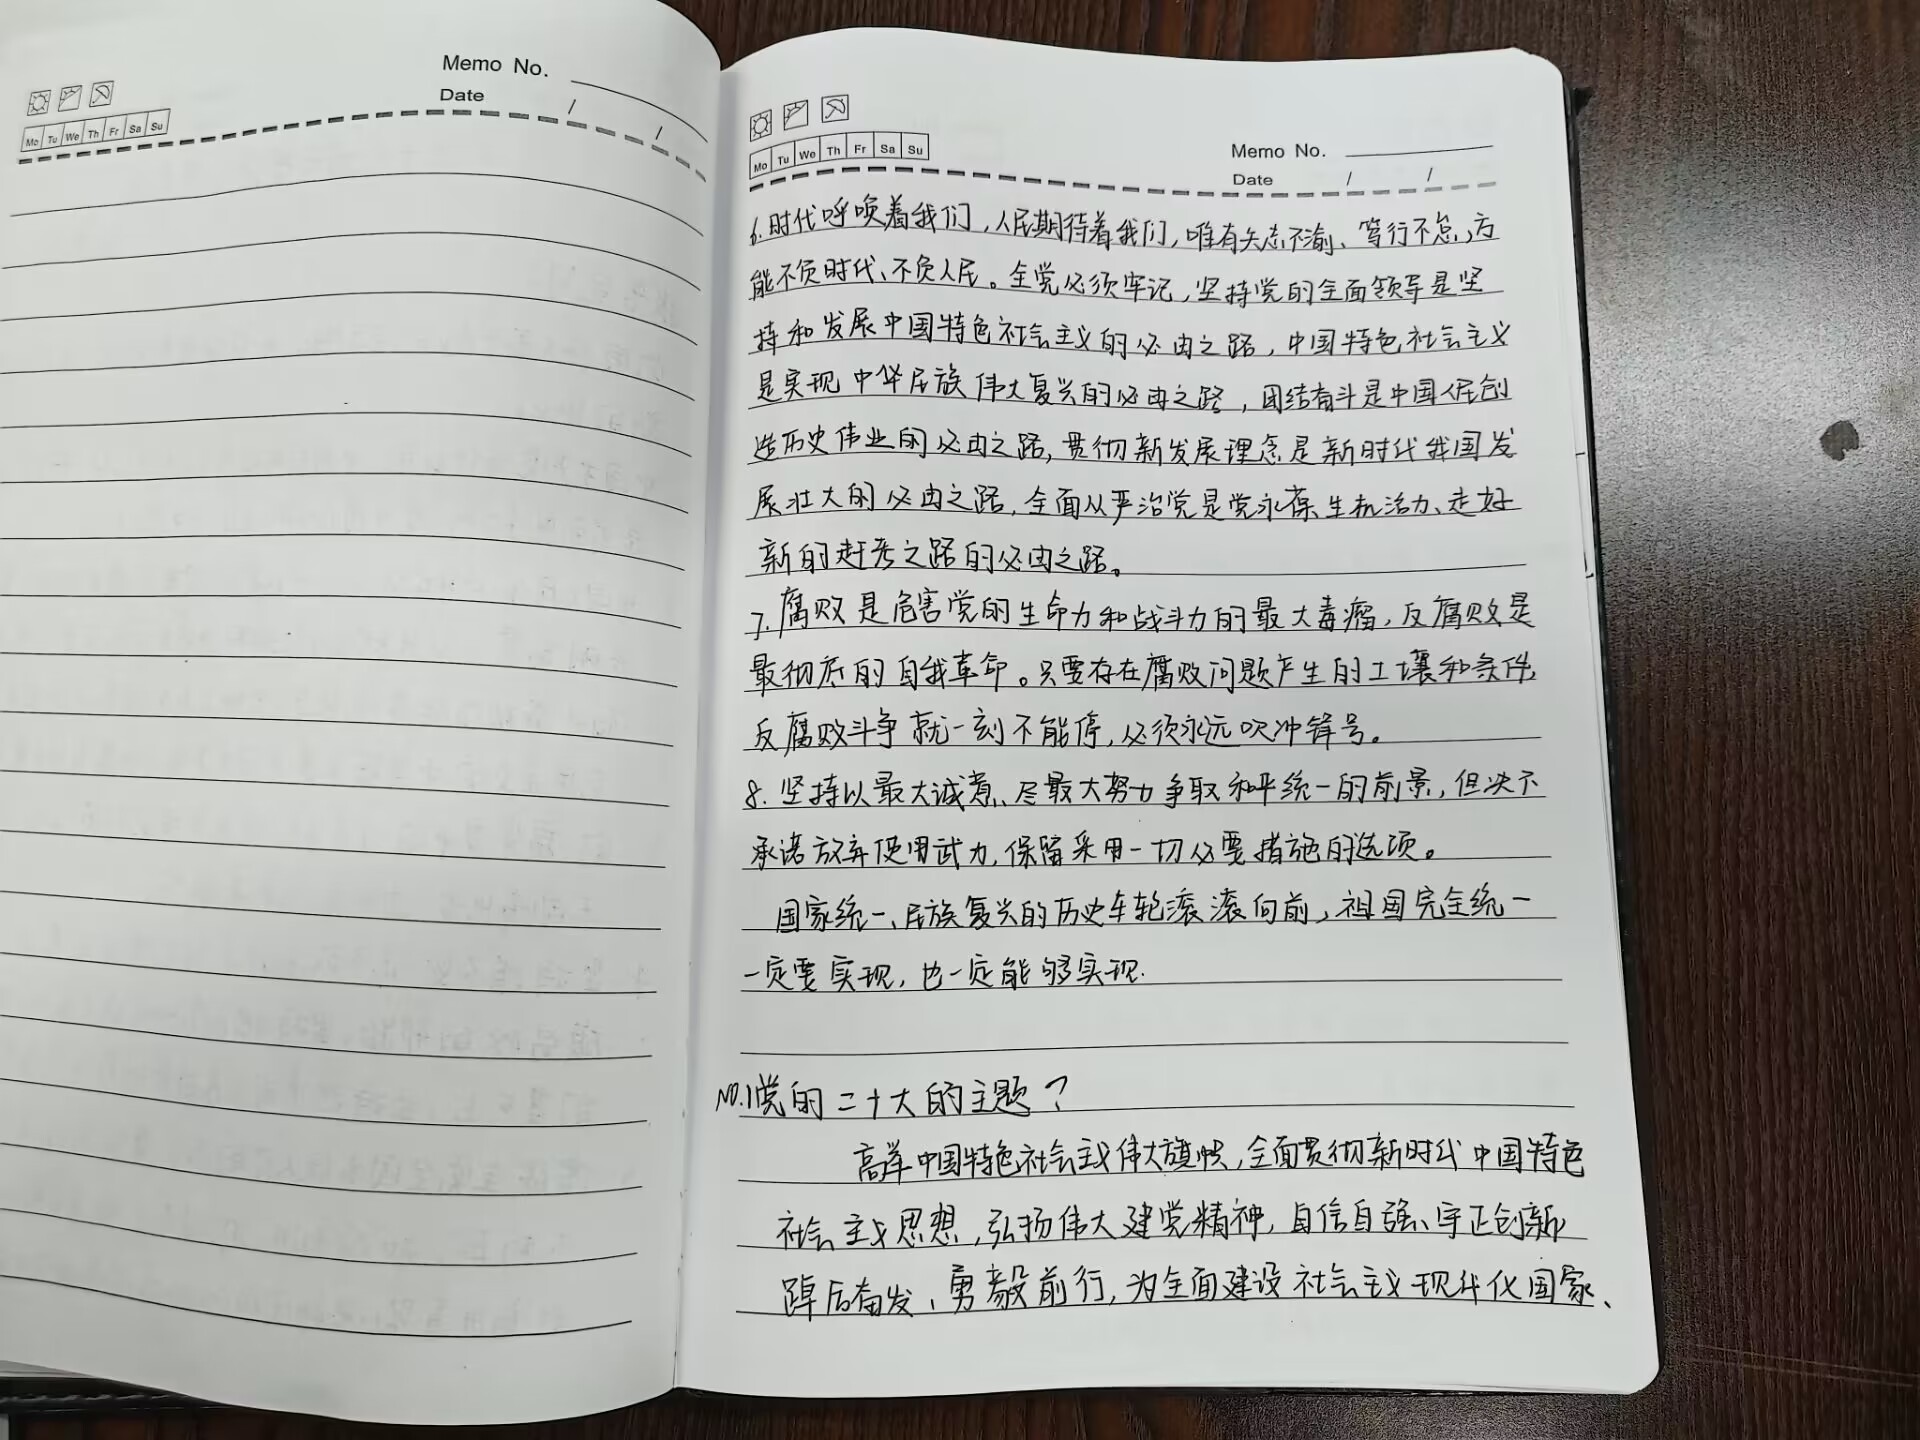 Memo No.
Date / /
Mo Tu We Th Fr Sa Su
Memo No.
Date / /
Mo Tu We Th Fr Sa Su
6.时代呼唤着我们,人民期待着我们,唯有矢志不渝、笃行不怠,方
能不负时代、不负人民。全党必须牢记,坚持党的全面领导是坚
持和发展中国特色社会主义的必由之路,中国特色社会主义
是实现中华民族伟大复兴的必由之路,团结奋斗是中国人民创
造历史伟业的必由之路,贯彻新发展理念是新时代我国发
展壮大的必由之路,全面从严治党是党永葆生机活力、走好
新的赶考之路的必由之路。
7.腐败是危害党的生命力和战斗力的最大毒瘤,反腐败是
最彻底的自我革命。只要存在腐败问题产生的土壤和条件,
反腐败斗争就一刻不能停,必须永远吹冲锋号。
8.坚持以最大诚意、尽最大努力争取和平统一的前景,但决不
承诺放弃使用武力,保留采用一切必要措施的选项。
国家统一、民族复兴的历史车轮滚滚向前,祖国完全统一
一定要实现,也一定能够实现.
NO.1党的二十大的主题?
高举中国特色社会主义伟大旗帜,全面贯彻新时代中国特色
社会主义思想,弘扬伟大建党精神,自信自强、守正创新
踔厉奋发、勇毅前行,为全面建设社会主义现代化国家、